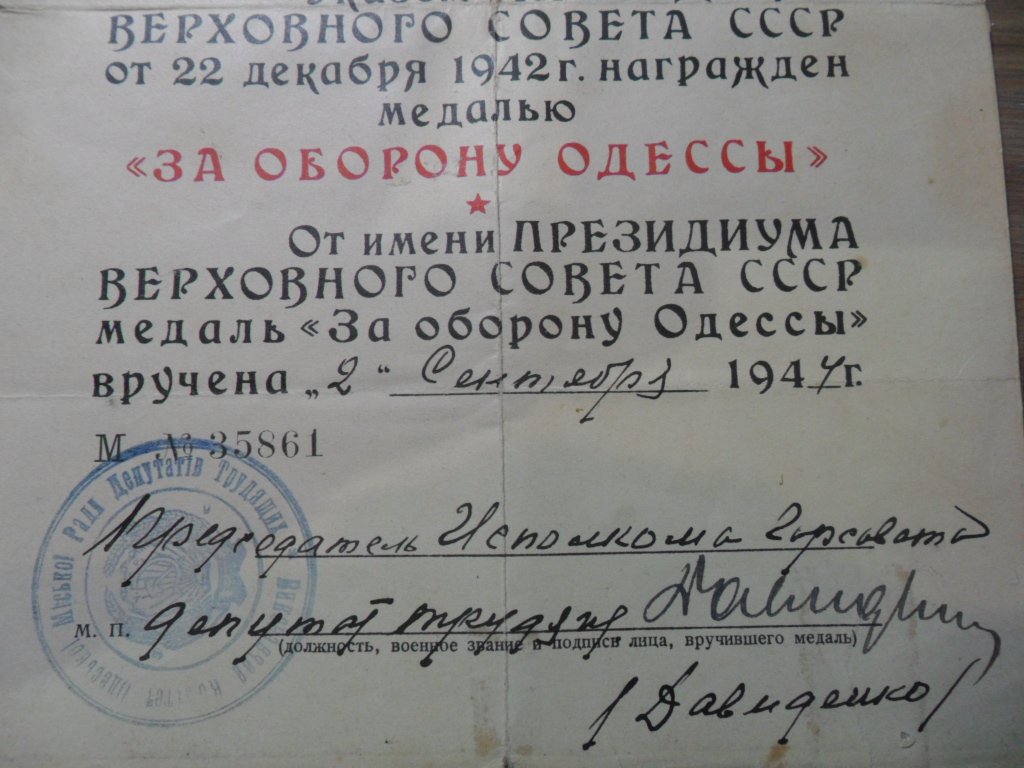 Указом
ВЕРХОВНОГО СОВЕТА СССР
от 22 декабря 1942 г. награжден
медалью
«ЗА ОБОРОНУ ОДЕССЫ»
От имени ПРЕЗИДИУМА
ВЕРХОВНОГО СОВЕТА СССР
медаль «За оборону Одессы»
вручена „2“ Сентября 1944 г.
М № 35861
Міської Ради Депутатів Трудящих
Одеської
Председатель Исполкома Горсовета
М. П. депутат трудящ
(должность, военное звание и подпись лица, вручившего медаль)
(Давиденко)